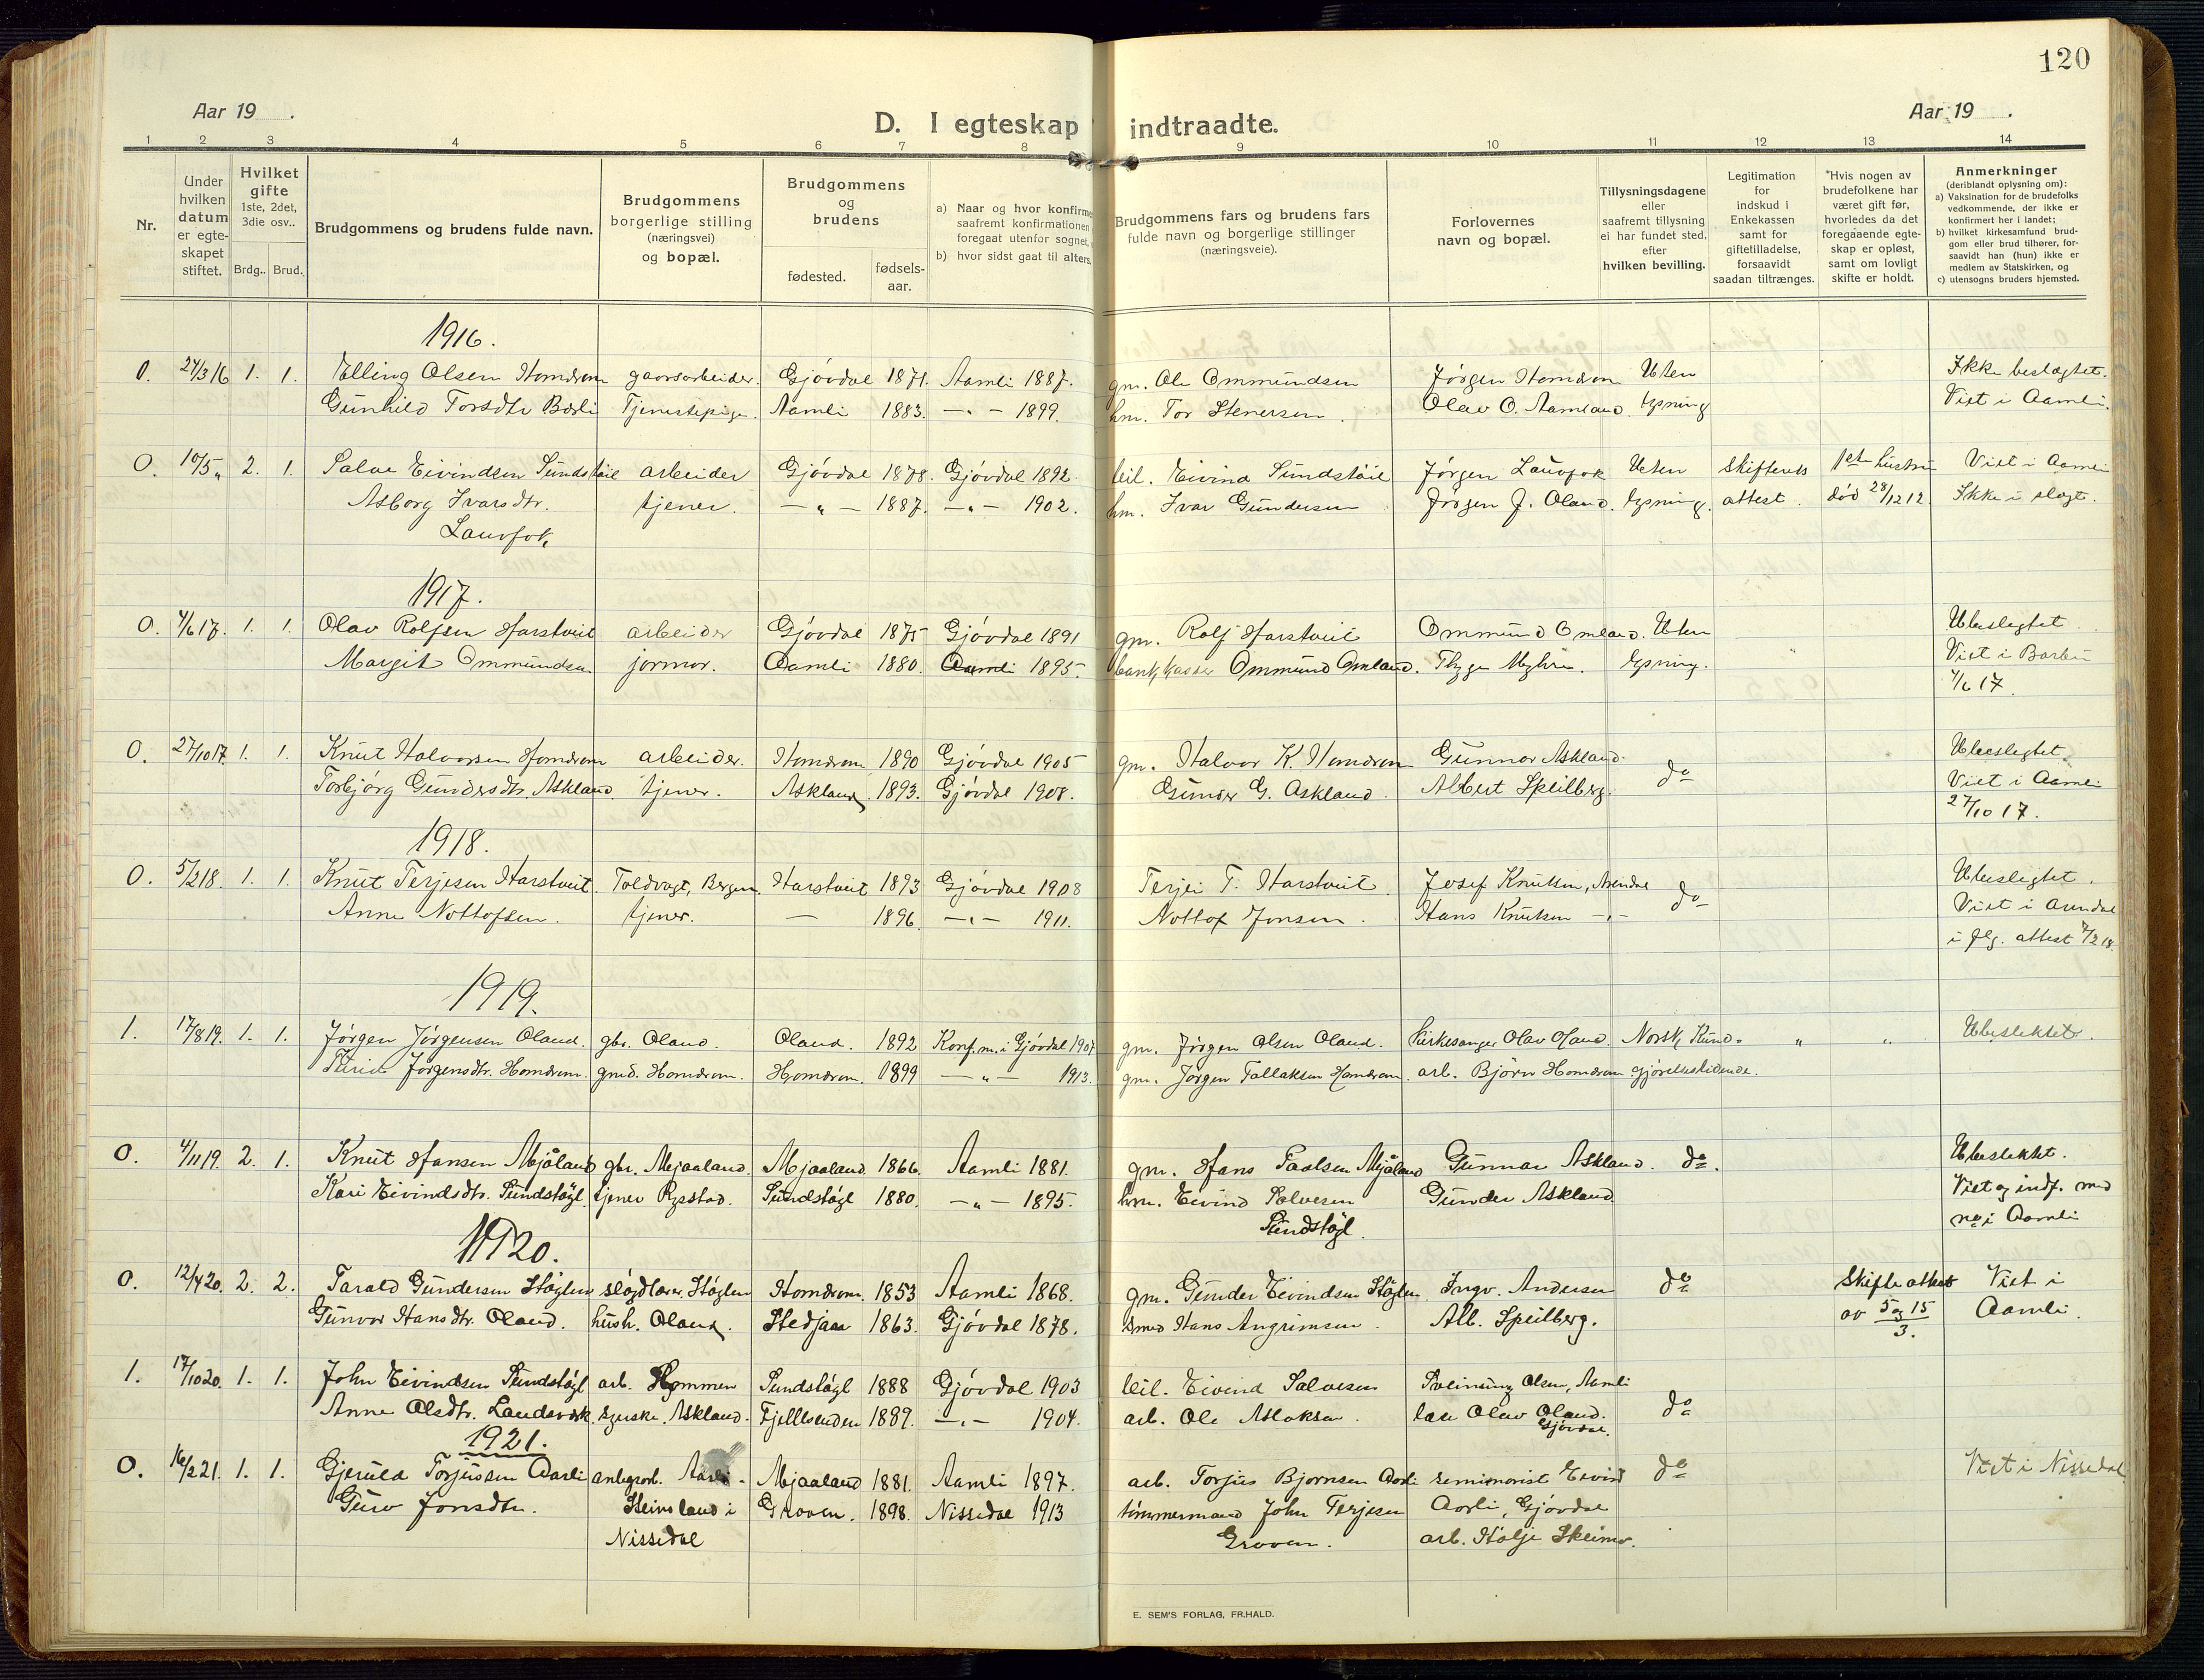 120
Aar 19 .
D. I egteskap indtraadte.
Aar 19 .
1 2 3 4 5 6 7 8 9 10 11 12 13 14
Nr.
Under hvilken datum er egteskapet stiftet.
Hvilket gifte 1ste, 2det, 3die osv..
Brdg.. Brud.
Brudgommens og brudens fulde navn.
Brudgommens borgerlige stilling (næringsvei) og bopæl.
Brudgommens og brudens
fødested. fødselsaar.
a) Naar og hvor konfirme saafremt konfirmationen foregaat utenfor sognet,
b) hvor sidst gaat til alters.
Brudgommens fars og brudens fars fulde navn og borgerlige stillinger (næringsveie).
Forlovernes navn og bopæl.
Tillysningsdagene eller saafremt tillysning ei har fundet sted, efter hvilken bevilling.
Legitimation for indskud i Enkekassen samt for giftetilladelse, forsaavidt saadan tiltrænges.
*Hvis nogen av brudefolkene har været gift før, hvorledes da det foregaaende egteskap er opløst, samt om lovligt skifte er holdt.
Anmerkninger (deriblandt oplysning om): a) Vaksination for de brudefolks vedkommende, der ikke er konfirmert her i landet; b) hvilket kirkesamfund brudgom eller brud tilhører, forsaavidt han (hun) ikke er medlem av Statskirken, og c) utensogns bruders hjemsted.
1916.
0. 24/3 16 1. 1. Elling Olsen Homdrom gaardsarbeider. Gjövdal 1871. Aamli 1887. gm. Ole Ommundsen Jörgen Homdrom Uten Ikke beslægtet.
Gunhild Torsdtr Bærli Tjenestepige Aamli 1883. —"— 1899. hm. Tor Stenersen. Olav O. Aamland. lysning Viet i Aamli.
0. 10/5 " 2. 1. Salve Eivindsen Sundstöil arbeider Gjövdal 1878. Gjövdal 1892. leil. Eivind Sundstöil Jörgen Lauvfok Uten Skifterets 1ste hustru Viet i Aamli
Asborg Ivarsdtr. tjener. —"— 1887. —"— 1902. hm. Ivar Gundersen Jörgen J. Oland. lysning. attest. död 28/12 12 Ikke i slegt.
Lauvfok
1917.
0. 4/6 17. 1. 1. Olav Rolfsen Harstveit arbeider Gjövdal 1875 Gjövdal 1891 gm. Rolf Harstveit Ommund Omland. Uten Ubeslegtet.
Margit Ommundsen. jormor. Aamli 1880. Aamli 1895. bankkasser Ommund Omland. Thyge Myhre. lysning. Viet i Barbu
4/6 17.
0. 27/10 17. 1. 1. Knut Halvorsen Homdrom arbeider. Homdrom 1890 Gjövdal 1905 gm. Halvor K. Homdrom Gunnar Askland. do Ubeslegtet.
Torbjörg Gundersdtr. Askland. tjener. Askland 1893. Gjövdal 1908. Gunder G. Askland. Albert Speilberg. Viet i Aamli
27/10 17.
1918.
0. 5/2 18. 1. 1. Knut Terjesen Harstveit Toldvagt, Bergen. Harstveit 1893 Gjövdal 1908 Terjei T. Harstveit. Josef Knutsen, Arendal do Ubeslegtet.
Anne Nottofsen. tjener. — 1896. —"— 1911. Nottof Jonsen. Hans Knutsen —"— Viet i Arendal
i flg. attest 7/2 18.
1919.
1. 17/8 19. 1. 1. Jörgen Jörgensen Oland. gbr. Oland. Oland. 1892 Konf. m. i Gjövdal 1907 gm. Jörgen Olsen Oland. kirkesanger Olav Oland. Norsk Kund- " " Ubeslektet.
Jörgensdtr. Homdrom. gmd. Homdrom. Homdrom. 1899 —"— 1913. gm. Jörgen Tallaksen Homdrom. arb. Björn Homdrom gjörelsestidende.
0. 4/11 19. 2. 1. Knut Hansen Mjåland gbr. Mjaaland. Mjaaland. 1866. Aamli 1881. gm. Hans Paalsen Mjåland Gunnar Askland. do. Ubeslektet.
Kari Eivindsdtr. Sundstögl. tjener Rysstad. Sundstögl 1880. —"— 1895. hm. Eivind Salvesen Gunder Askland. Viet og indf. med
Sundstögl. no i Aamli
1920.
0. 12/4 20. 2. 2. Tarald Gundersen Stöglen slöjdlærer. Stöglen Homdrom. 1853 Aamli 1868. gm. Gunder Eivindsen Stöglen Ingv. Andersen do Skifte attest Viet i
Gunvor Hansdtr. Oland. hush. Oland. Stedjan 1863. Gjövdal 1878. smed Hans Angrimsen. Alb. Speilberg. av 5 og 15/3. Aamli.
1. 17/10 20. 1. 1. John Eivindsen Sundstögl arb. Hommen Sundstögl 1888 Gjövdal 1903 leil. Eivind Salvesen Sveinung Olsen, Aamli
Anne Olsdtr. Landsverk. syerske. Askland. Fjellsenden 1889. —"— 1904. arb. Ole Aslaksen. lær. Olav Oland. do
Gjövdal.
1921.
0. 16/2 21. 1. 1. Gjeruld Torjussen Aarli anlegsarb. Aarli Mjaaland 1881. Aamli 1897. arb. Torjus Bjornsen Aarli seminarist Eivind do Viet i Nissedal
Guro Jonsdtr. Steinsland i Groven. 1898. Nissedal 1913 tömmermand John Terjesen Aarli, Gjövdal
Nissedal Groven. arb. Hölje
E. SEM'S FORLAG, FR.HALD.